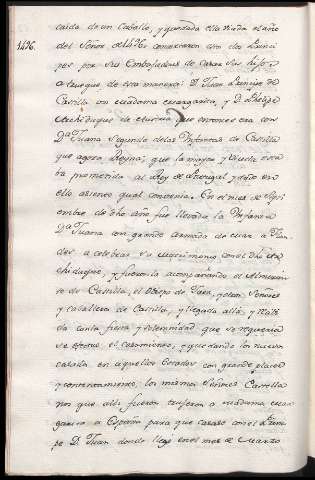 caida de un Caballo, y quedada ella viuda el año
1496.
del Señor de 1496 comenzaron los dos Princi
pes por sus Embaxadores de casar sus hijos
a trueque de esta manera: D. Juan Principe de
Castilla con madama Margarita, y D. Phelipe
Archiduque de Austria que entonces era con
Dª Juana segunda de las Infantas de Castilla
que agora Reyna; que la mayor y viuda esta
ba prometida al Rey de Portugal y dose en
ello asiento qual convenia. En el mes de Sept
iembre de dho año fue llevada la Infanta
Dª Juana con grande armada de mar a Flan
des a celebrar su matrimonio con el dho Ar
chiduque, y fueronla acompañando el Almiran
te de Castilla, el Obispo de Jaen, y otros Señores
y caballeros de Castilla, y llegada allá, y
da tanta fiesta y solemnidad que se requeria
se el casamiento, y quedando los nuevos
casados en aquellos Estados con grande placer
y contentamiento, los mismos Señores Castella
nos que allí fueron truxeron a madama Mar
garita a España para que casase con el Princi
pe D. Juan donde llegó en el mes de Marzo